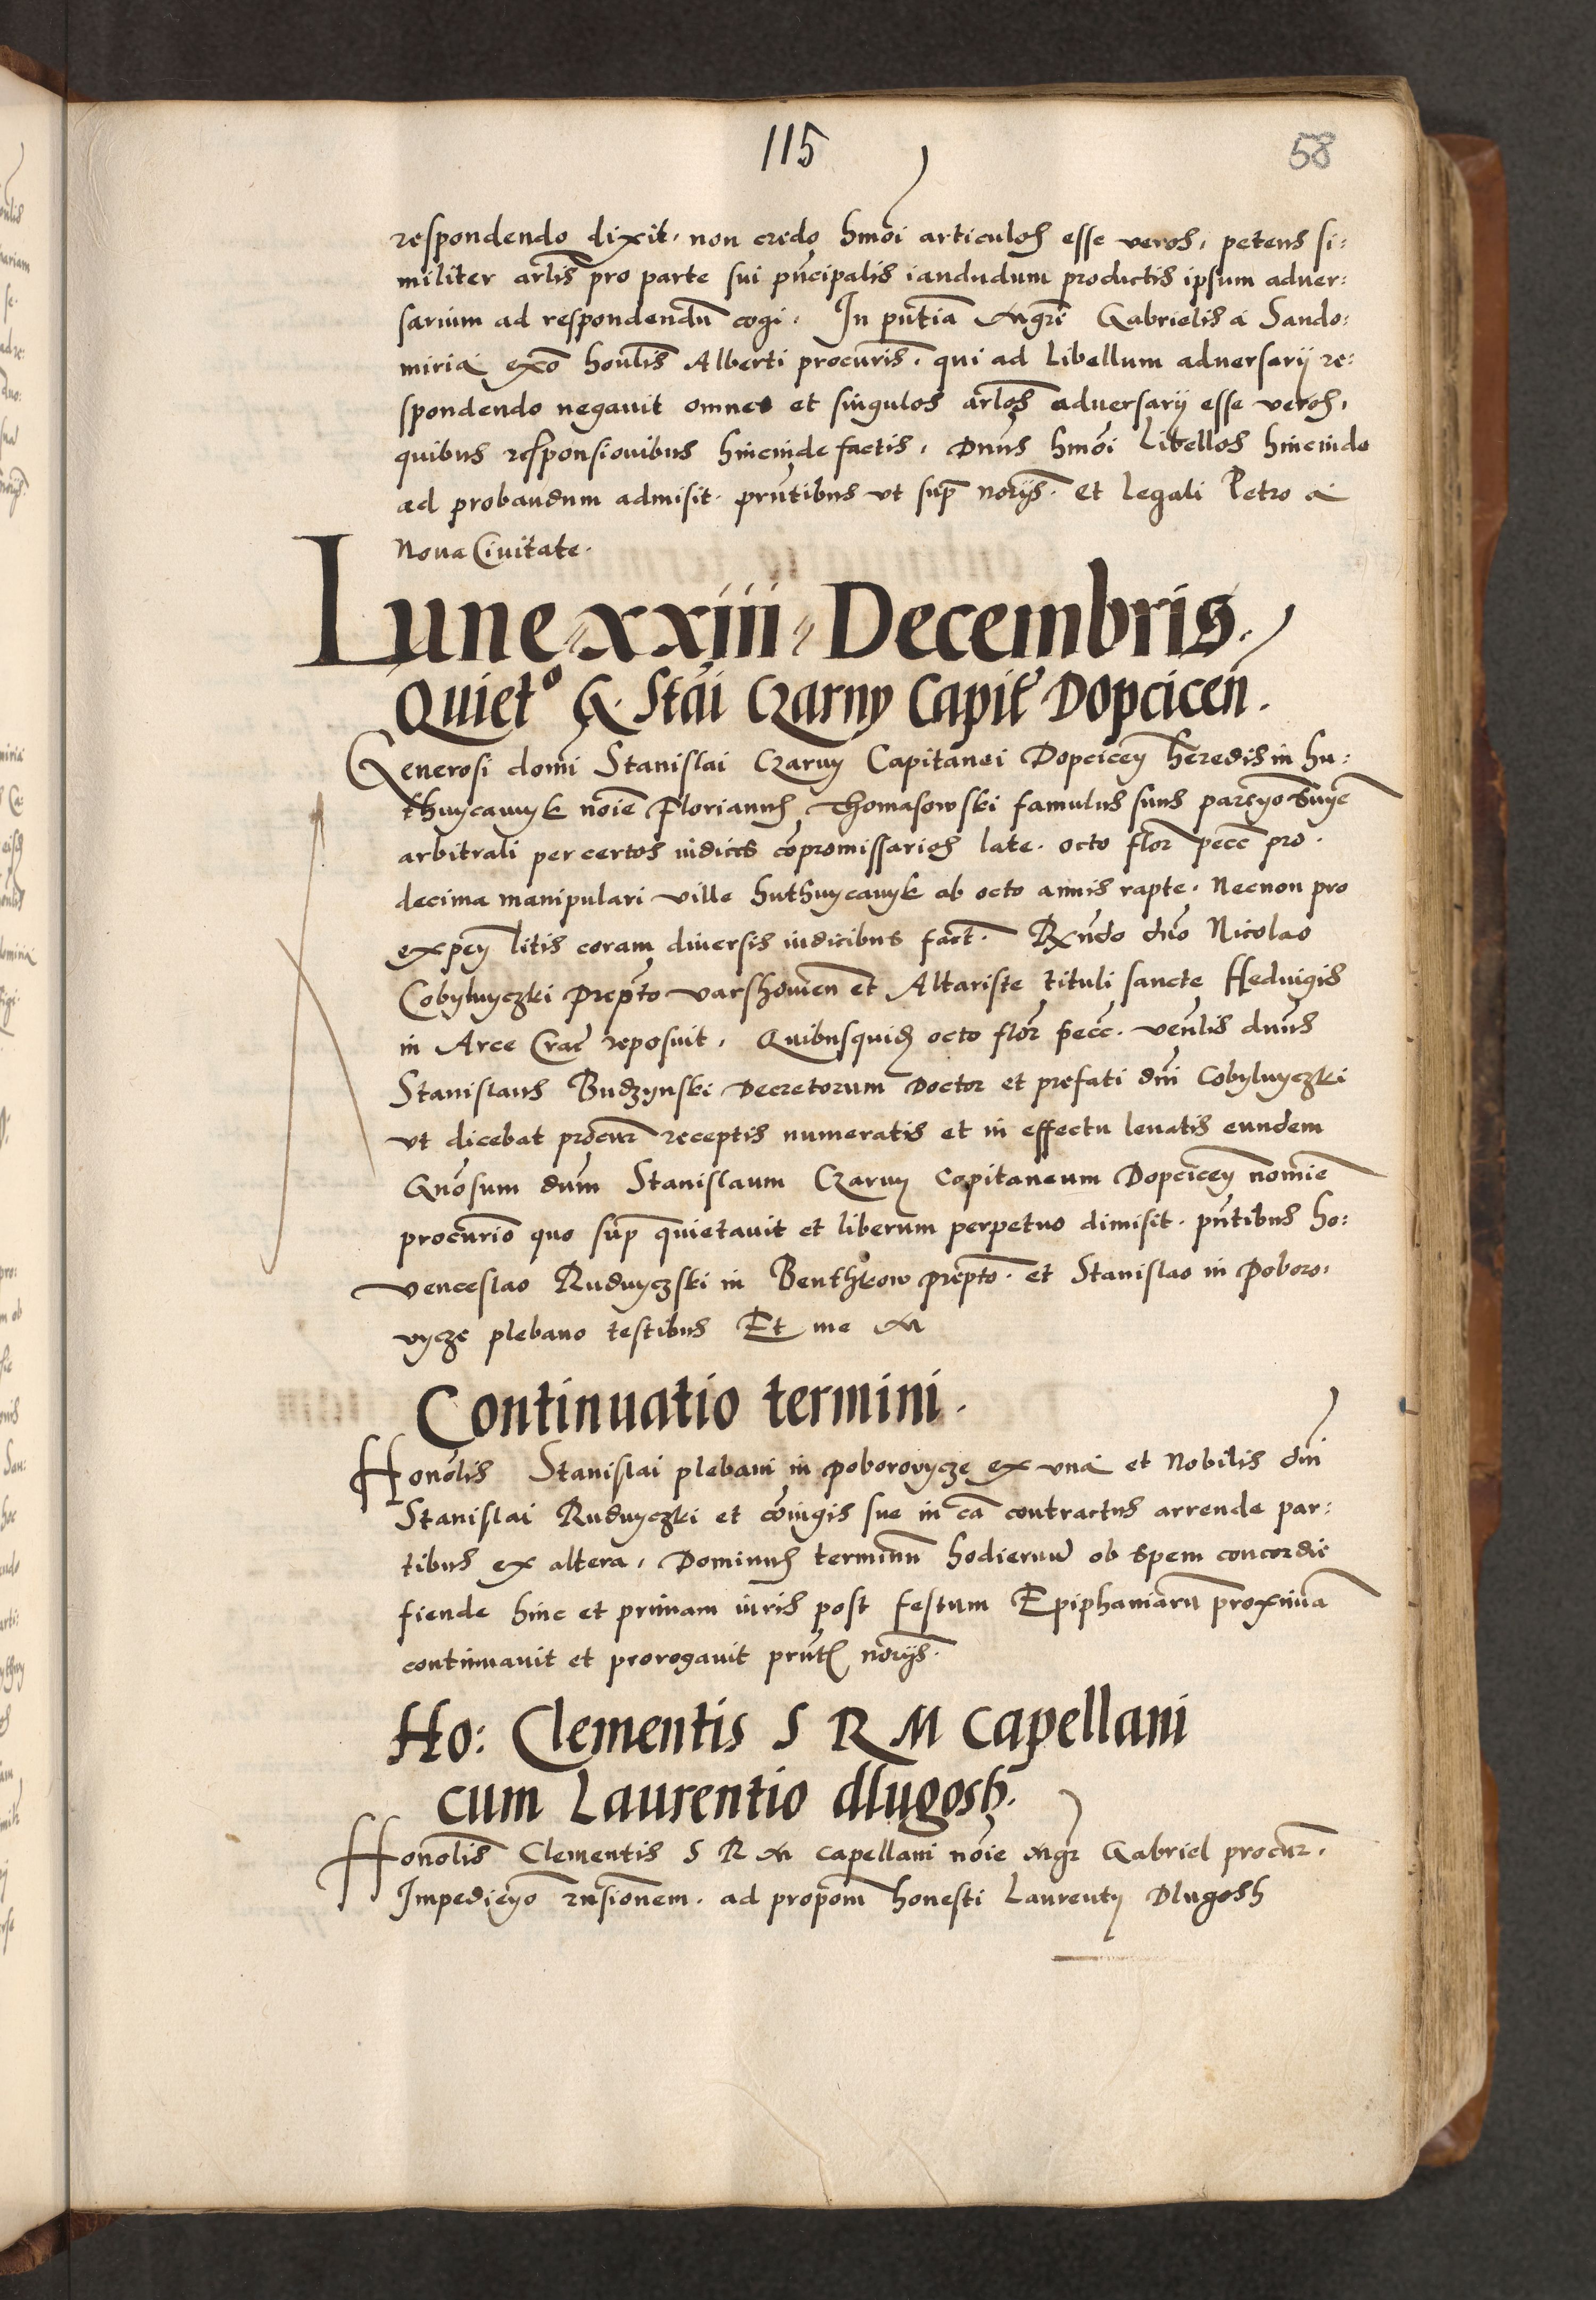 115
58
respondendo dixit. non credo hmoi articulos esse veros, petens si:
militer artlis pro parte sui pncipalis iandudum productis ipsum adver:
sarium ad respondendū cogi. In pntia Mgri Gabrielis a Sando:
miria exo honlis Alberti procuris. qui ad Libellum adversarij re:
spondendo negavit omnes et singulos artlos adversarij esse veros,
quibus responsionibus hincinde factis, Dnus hmoi Libellos hincinde
ad probandum admisit. prntibus vt sup norijs. et legali Petro a
Nova Civitate.
Lune xxiii Decembris.
Quieto G. Stai Czarny Capit Dopcicen.
Generosi domi Stanislai Czarny Capitanei Dopcicen heredis in hu:
thwycawyk noie Florianus Thomasowski famulus suus
arbitrali per certos iudices cōpromissarios late. octo flor pecc pro.
decima manipulari ville huthwycawyk ab octo annis rapte. Necnon pro
expen litis coram diversis iudicibus fact. Rxndo dno Nicolao
Cobylwyczki prepto varshovien et Altariste tituli sancte Hedvigis
in Arce Crac reposuit. Quibusquid octo flor pecc. venlis dnus
Stanislaus Budzynski Decretorum Doctor et prefati dni Cobylwyczki
vt dicebat procur receptis numeratis et in effectu levatis eundem
Gnosum dum Stanislaum Czarny Capitaneum Dopcicen nomie
procurio quo sup quietavit et liberum perpetuo dimisit. pntibus ho:
venceslao Rudwyczski in Benthkow prepto. et Stanislao in poboro,
vycze plebano testibus Et me M
Continuatio termini.
Honolis Stanislai plebani in poborovycze ex vna et Nobilis dni
Stanislai Rudwyczki et cōiugis sue in cā contractus arrende par:
tibus ex altera, Dominus terminū hodiernū ob spem concordie
fiende hinc et primam iuris post festum Epiphaniarū proximā
continuavit et prorogavit prnt norijs.
Ho: Clementis S R M Capellani
cum Laurentio dlugosh.
Honolis Clementis S R M capellani noie Mgr Gabriel procur.
Impedieno rnsionem. ad propom honesti Laurentij Dlugosh